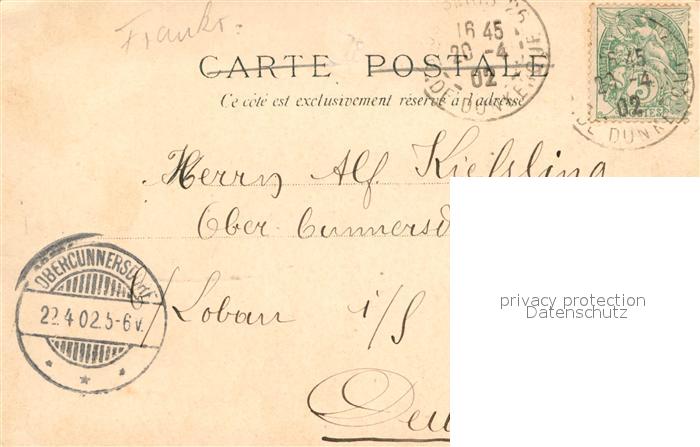 Franko.
CARTE POSTALE
Ce côté est exclusivement réservé à l'adresse
PARIS 25
16 45
20 -4
02
R. DE DUNKERQUE
45
-4
02
DE DUNKERQUE
POSTES
Herrn Alf. Kießling
Ober Cunnersd
b/ Löbau i/S
Deu
OBERCUNNERSDORF
22.4 02.5-6V.
privacy protection
Datenschutz